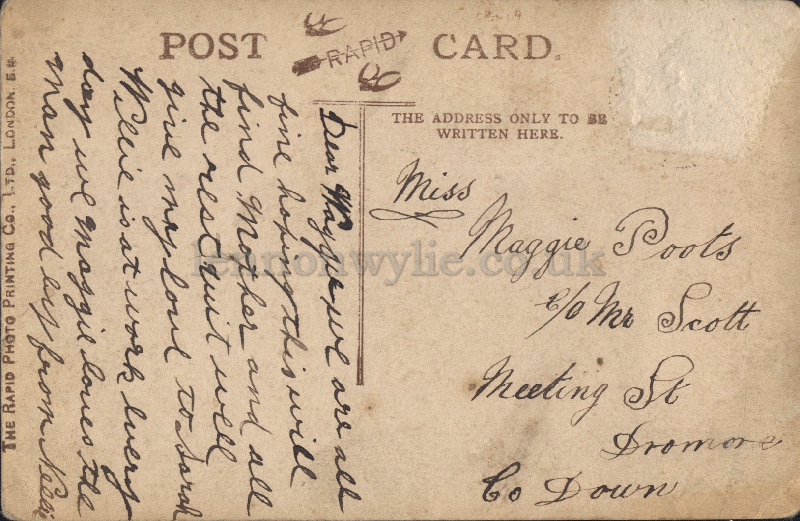 POST CARD.
RAPID
THE ADDRESS ONLY TO BE
WRITTEN HERE.
Miss
Maggie Poots
c/o Mr Scott
Meeting St
Dromore
Co Down
Dear Maggie we are all
fine hoping this will
find Mother and all
the rest quit well
give my love to Sarah
Willie is at work every
day we Maggie loves the
man good by from Nellie
THE RAPID PHOTO PRINTING CO., LTD., LONDON, E.C.
lennonwylie.co.uk